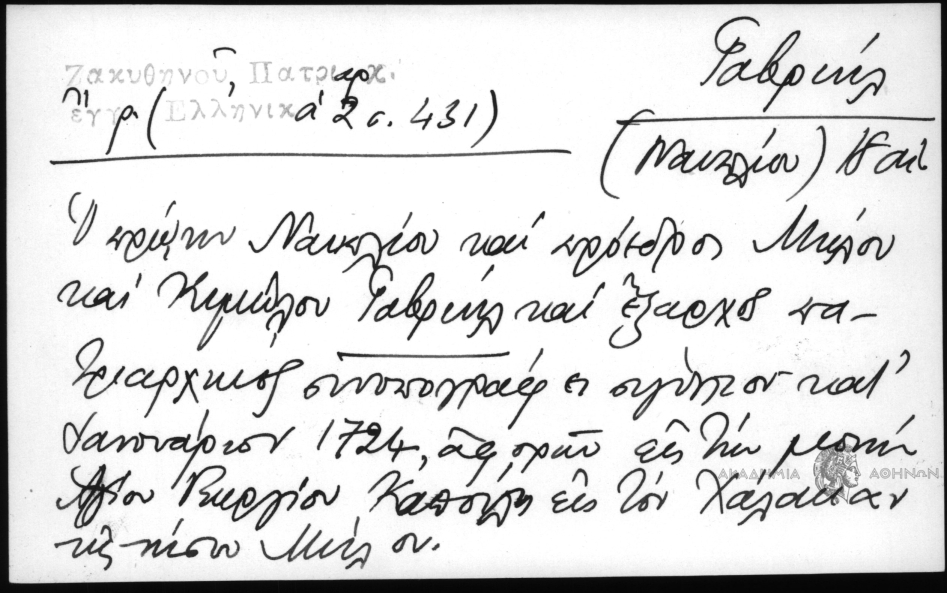 Ζακυθηνοῦ, Πατριαρχ.
ἔγγρ. (Ἑλληνικά 2 σ. 431)
Γαβριήλ
(Ναυπλίου) 18 αἰ
Ὁ πρώην Ναυπλίου καί πρόεδρος Μήλου
καί Κιμώλου Γαβριήλ καί ἔξαρχος πα-
τριαρχικός συνυπογράφει σιγίλλιον κατ'
Ἰανουάριον 1724, ἀφορῶν εἰς τήν μονήν
Ἁγίου Γεωργίου εἰς τόν Χάλακαν
τῆς νήσου Μήλου.
ΑΚΑΔΗΜΙΑ ΑΘΗΝΩΝ